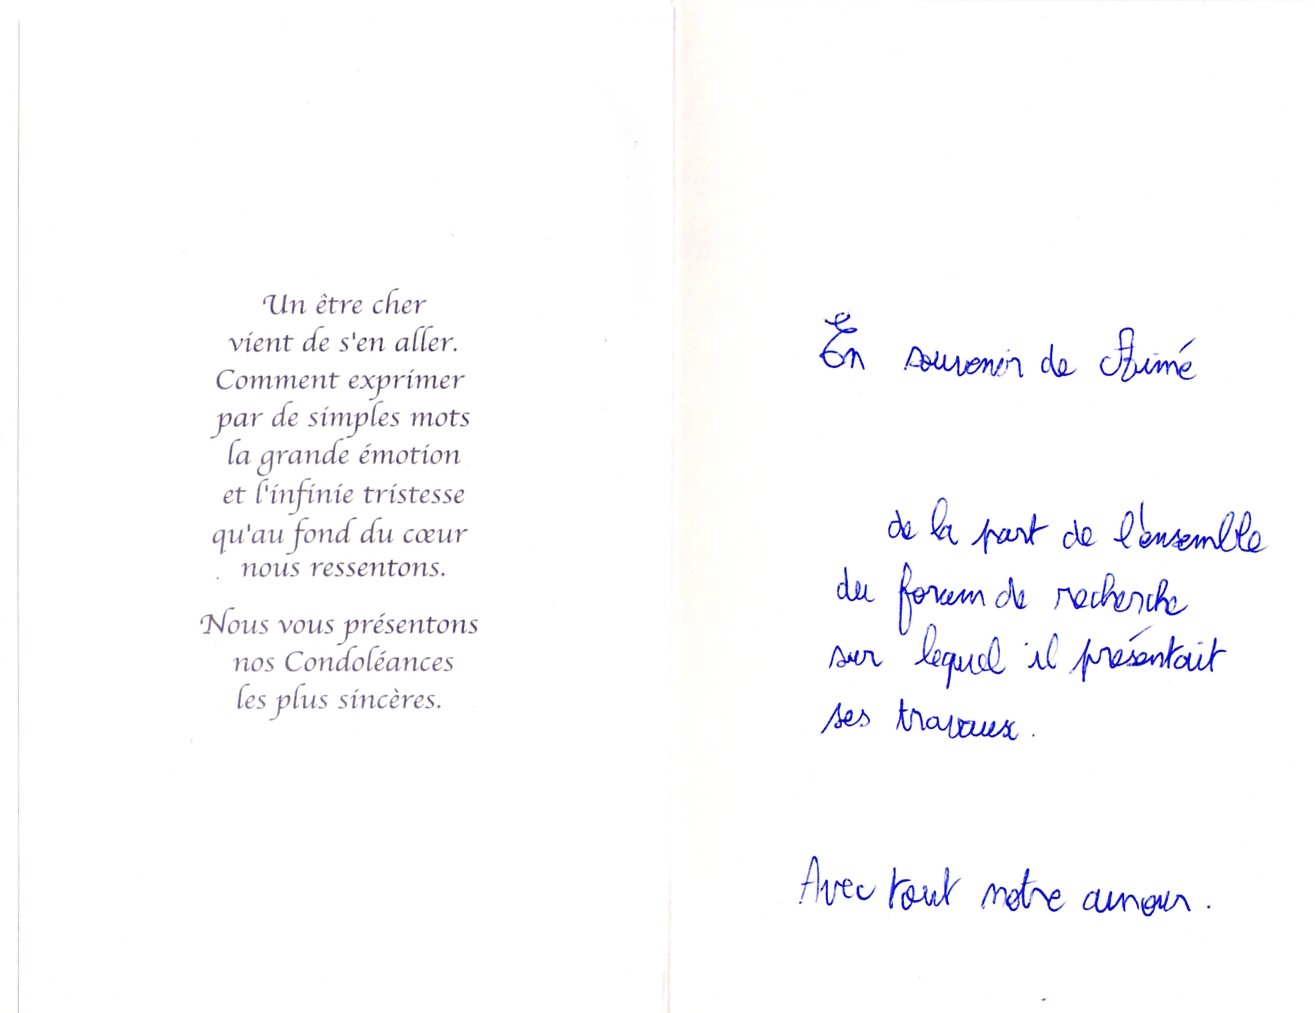 Un être cher
vient de s'en aller.
Comment exprimer
par de simples mots
la grande émotion
et l'infinie tristesse
qu'au fond du cœur
nous ressentons.
Nous vous présentons
nos Condoléances
les plus sincères.
En souvenir de Aimé
de la part de l'ensemble
du forum de recherche
sur lequel il présentait
ses travaux.
Avec tout notre amour.